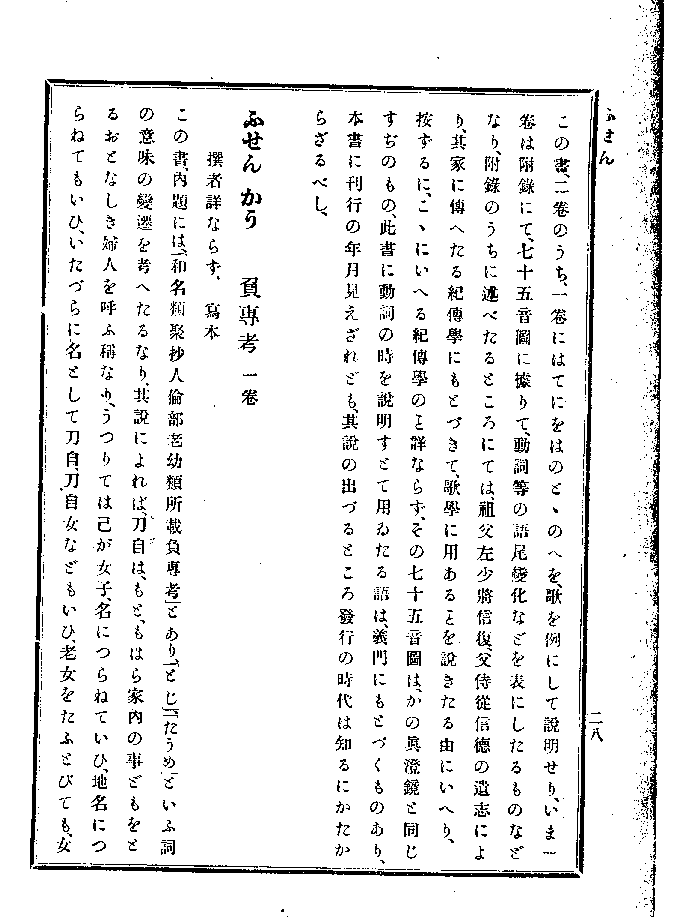 ふせん
二八
この書、二卷のうち、一卷にはてにをはのとゝのへを、歌を例にして説明せり、いま一
卷は附錄にて、七十五音圖に據りて、動詞等の語尾變化などを表にしたるものなど
なり、附錄のうちに述べたるところにては、祖父左少將信復、父侍從信德の遺志によ
り、其家に傳へたる紀傳學にもとづきて、歌學に用あることを説きたる由にいへり、
按するに、こゝにいへる紀傳學のと詳ならず、その七十五音圖は、かの眞澄鏡と同じ
すぢのもの、此書に動詞の時を説明すとて用ゐたる語は、義門にもとづくものあり、
本書に刊行の年月見えざれども、其説の出づるところ發行の時代は知るにかたか
らざるべし、
ふせん かう 負專考 一卷
撰者詳ならず、 寫本
この書、内題には、「和名類聚抄人倫部老幼類所載負專考」とあり、「とじ」「たうめ」といふ詞
の意味の變遷を考へたるなり、其説によれば、刀自は、もと、もはら家内の事どもをと
るおとなしき婦人を呼ふ稱なり、うつりては己が女子、名につらねていひ、地名につ
らねてもいひ、いたづらに名として刀自、刀自女などもいひ、老女をたふとびても、女